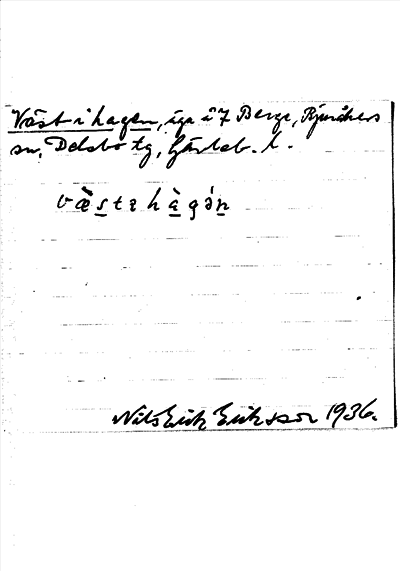 Väst i hagen, äga i 7 Berge, Bjuråkers
sn, Delsbo tg, Gävleb. l.
væstahàgən
Nils Erik Eriksson 1936.